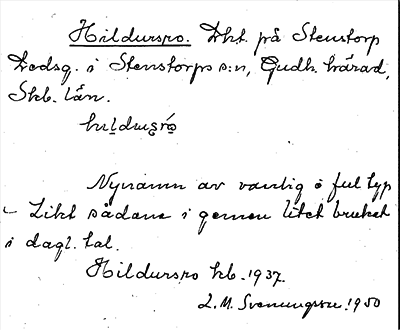 Hildursro. Lht på Stenstorp
Lodsg. i Stenstorps s:n, Gudh. härad,
Skb. län.
hɩlduṣrō
Nynamn av vanlig o ful typ
– Likt sådana i gemen litet brukat
i dagl. tal.
Hildursro kb. 1937.
L. M. Svenungsson. 1950